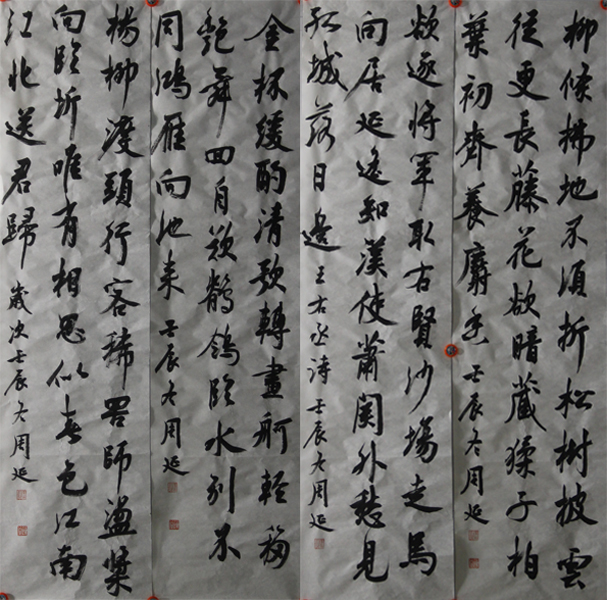 柳條拂地不須折松樹披雲
從更長藤花欲暗藏猱子柏
葉初齊養麝香 壬辰冬周延
欲逐將軍取右賢沙場走馬
向居延遙知漢使蕭關外愁見
孤城落日邊 王右丞詩 壬辰冬周延
金杯緩酌清歌轉畫舸輕移
艷舞回自嘆鶺鴒臨水別不
同鴻雁向池來 壬辰冬周延
楊柳渡頭行客稀罟師盪槳
向臨圻唯有相思似春色江南
江北送君歸 歲次壬辰冬周延